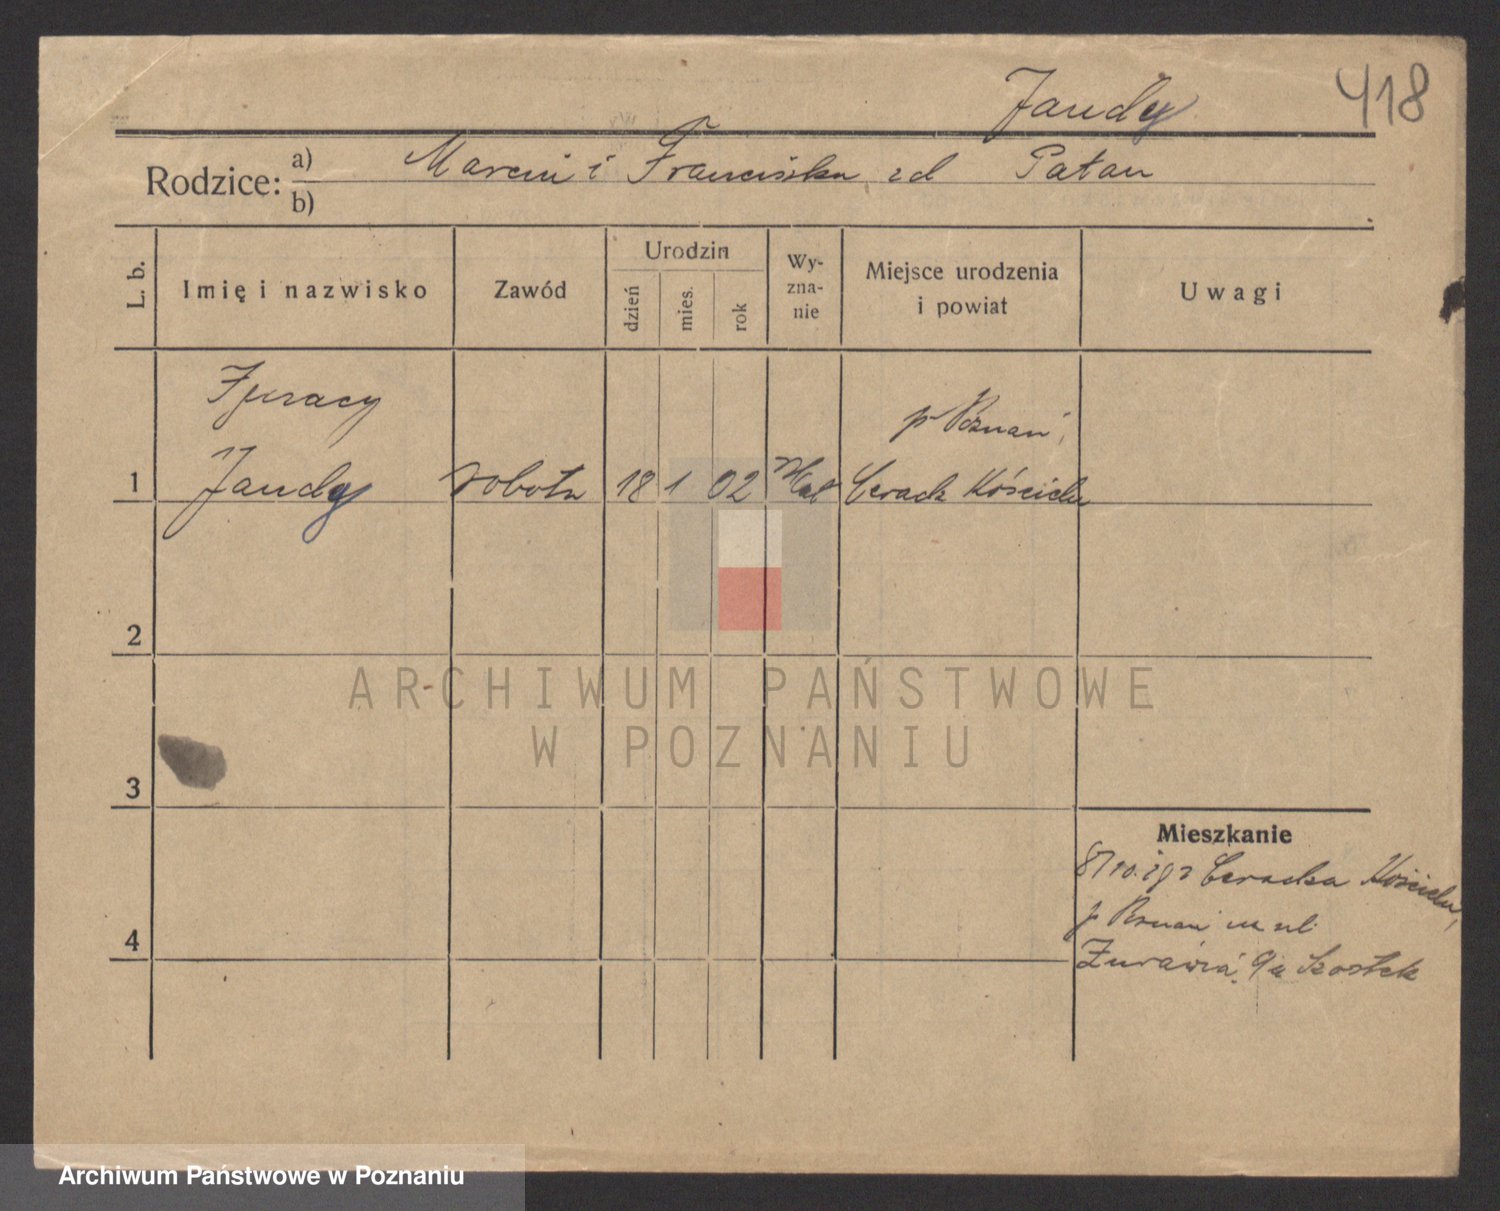 Jandy 418
Rodzice: a) Marcin i Franciszka zd Patan
b)
L. b. Imię i nazwisko Zawód Urodzin dzień mies. rok Wyznanie Miejsce urodzenia i powiat Uwagi
Ignacy
p Poznań,
1 Jandy robotn 18 1 02 Kat Cerack Kościeln
2
ARCHIWUM PAŃSTWOWE
W POZNANIU
3
Mieszkanie
Ceracka Kościeln,
4 p Poznań ul
Żurawia 9a Szostek
Archiwum Państwowe w Poznaniu